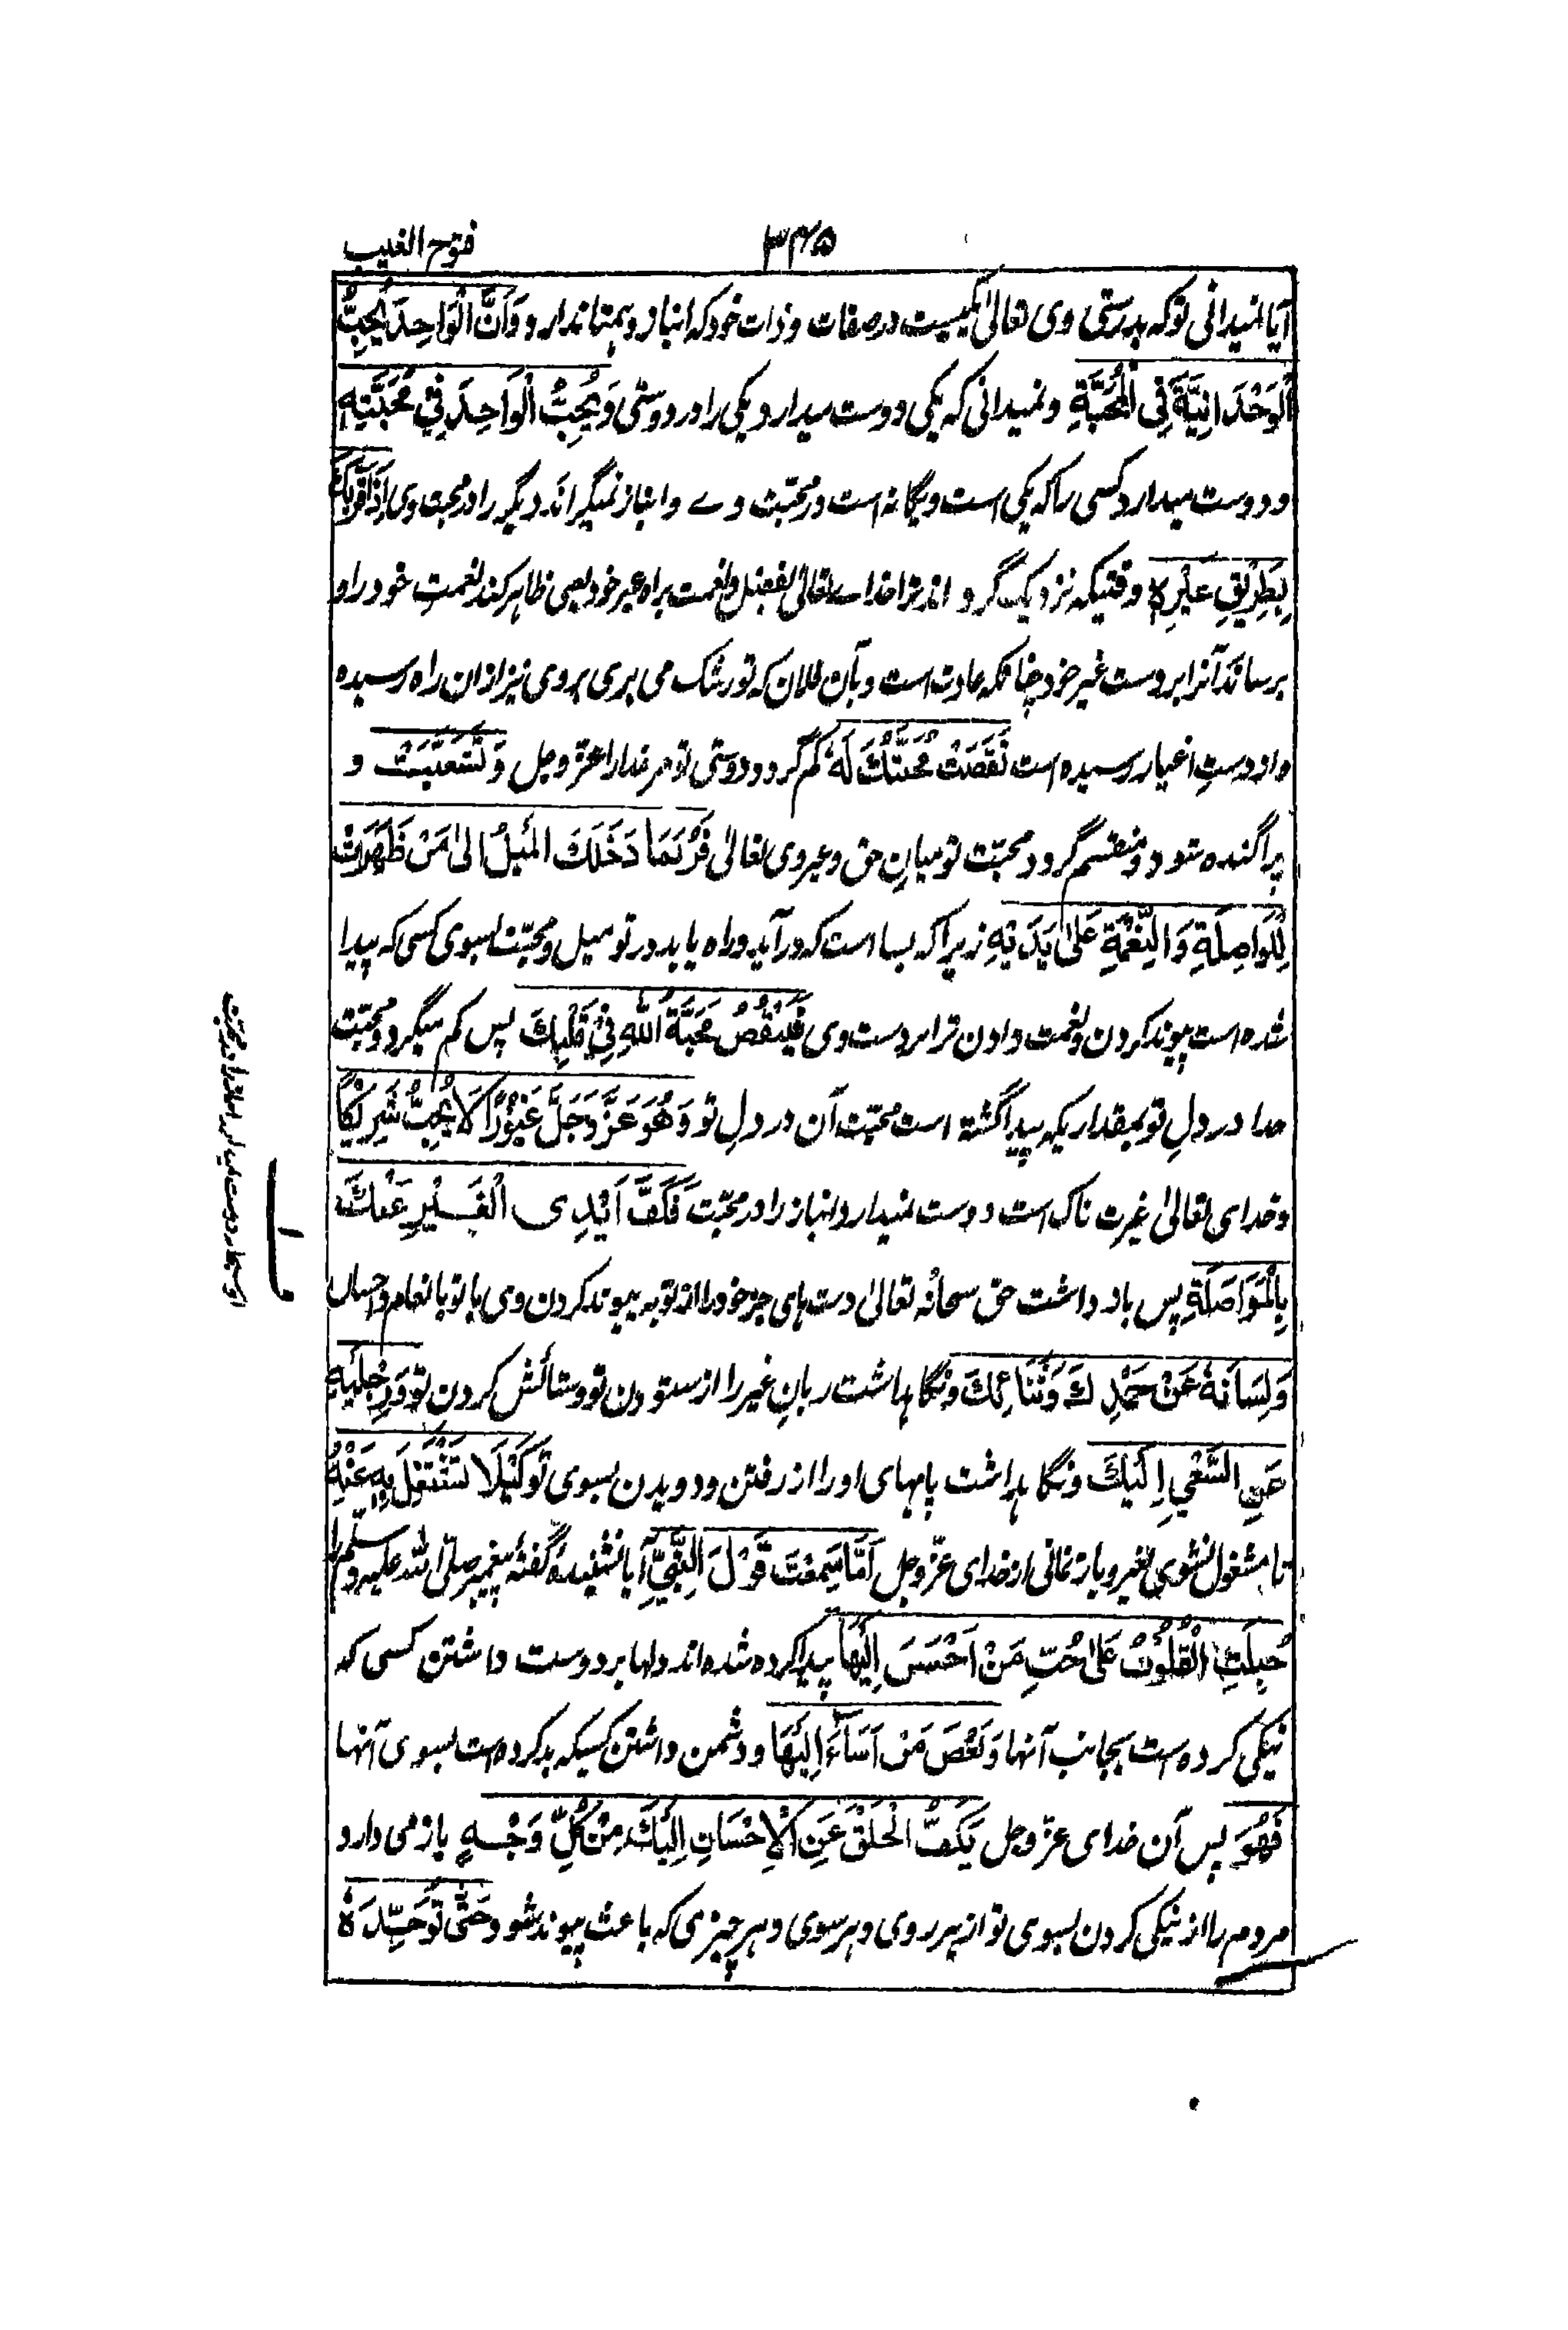 فتوح الغیب
۳۴۵
آیا نمیدانی تو که بدرستی وی تعالیٰ یکیست در صفات و ذات خود که انباز و همتا ندارد وَاَنَّ الْوَاحِدَ یُحِبُّ
الْوَحْدَانِیَّةَ فِی الْمُحَبَّةِ و نمیدانی که یکی دوست میدارد یکی را در دوستی وَیُحِبُّ الْوَاحِدَ فِیْ مُحَبَّتِهٖ
و دوست میدارد کسی را که یکی است و یگانه است در محبّت وے و انباز نمیگرداند دیگر را در محبت وی اِذَا قَرَّبَكَ
بِطَرِیْقِ غَیْرِهٖ وقتیکه نزدیک گرداند ترا خدا تعالیٰ بفضل و نعمت براه غیر خود یعنی ظاهر کند نعمتِ خود را و
برساند آنرا بر دست غیر خود چنانکه عادت است و بآن فلان که تو رشک می بری بر وی نیز ازان راه رسیده
و از دستِ اغیار رسیده است نَقَصَتْ مُحَبَّتُكَ لَهٗ کم گردد دوستی تو مر خدا را عزّ و جل وَتَشَعَّبَتْ و
پراگنده شود و منقسم گردد محبّت تو میانِ حق و غیر وی تعالیٰ فَرُبَمَا دَخَلَكَ الْمَیْلُ اِلیٰ مَنْ ظَهَرَتْ
الْمُوَاصِلَةُ وَالنِّعْمَةُ عَلیٰ یَدَیْهِ زیرا که بسا است که در آید و راه یابد در تو میل و محبّت بسوی کسی که پیدا
شده است پیوند کردن و نعمت دادن ترا بر دست وی فَیَنْقُصُ مَحَبَّةُ اللّٰهِ فِیْ قَلْبِكَ پس کم میگردد محبّت
خدا در دلِ تو بمقداریکه پیدا گشته است محبّت آن در دلِ تو وَهُوَ عَزَّ وَجَلَّ غَیُوْرٌ لَا یُحِبُّ شَرِیْکًا
و خدای تعالیٰ غیرت ناک است و دوست نمیدارد انباز را در محبّت فَكَفَّ اَیْدِی الْغَیْرِ عَنْكَ
بِالْمُوَاصَلَةِ پس باز داشت حق سبحانه تعالیٰ دست های جز خود را از تو به پیوند کردن وی با تو بانعام و احسان
وَلِسَانَهٗ عَنْ حَمْدِكَ وَثَنَائِكَ و نگاهداشت زبانِ غیر را از ستودن تو و ستائش کردن تو وَرِجْلَیْهِ
عَنِ السَّعْیِ اِلَیْكَ و نگاهداشت پایهای او را از رفتن و دویدن بسوی تو كَیْلَا تَشْتَغِلَ بِهٖ عَنْهُ
تا مشغول نشوی بغیر و باز نمانی از خدای عزّ و جل اَمَا سَمِعْتَ قَوْلَ النَّبِیِّ آیا نشنیدهٔ گفتهٔ پیغمبر صلّی اللّٰه علیه وسلّم
جُبِلَتِ الْقُلُوْبُ عَلیٰ حُبِّ مَنْ اَحْسَنَ اِلَیْهَا پیدا کرده شده اند دلها بر دوست داشتن کسی که
نیکی کرده است بجانب آنها وَبُغْضِ مَنْ اَسَآءَ اِلَیْهَا و دشمن داشتن کسیکه بد کرده است بسوی آنها
فَهُوَ پس آن خدای عزّ و جل یَكُفُّ الْخَلْقَ عَنِ الْاِحْسَانِ اِلَیْكَ مِنْ كُلِّ وَجْهٍ باز می دارد
مردم را از نیکی کردن بسوی تو از هر روی و هر سوی و هر چیزی که باعث پیوند شود حَتّٰی تُوَحِّدَهٗ